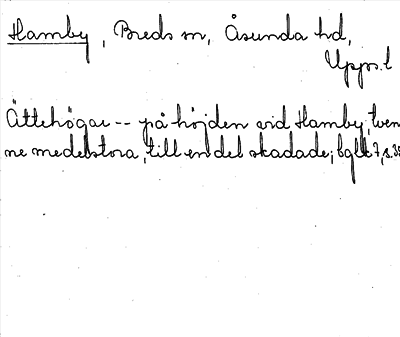 Hamby, Breds sn, Åsunda hd,
Upps. l
Ättehögar -- på höjden vid Hamby, tven
ne medelstora, till en del skadade;